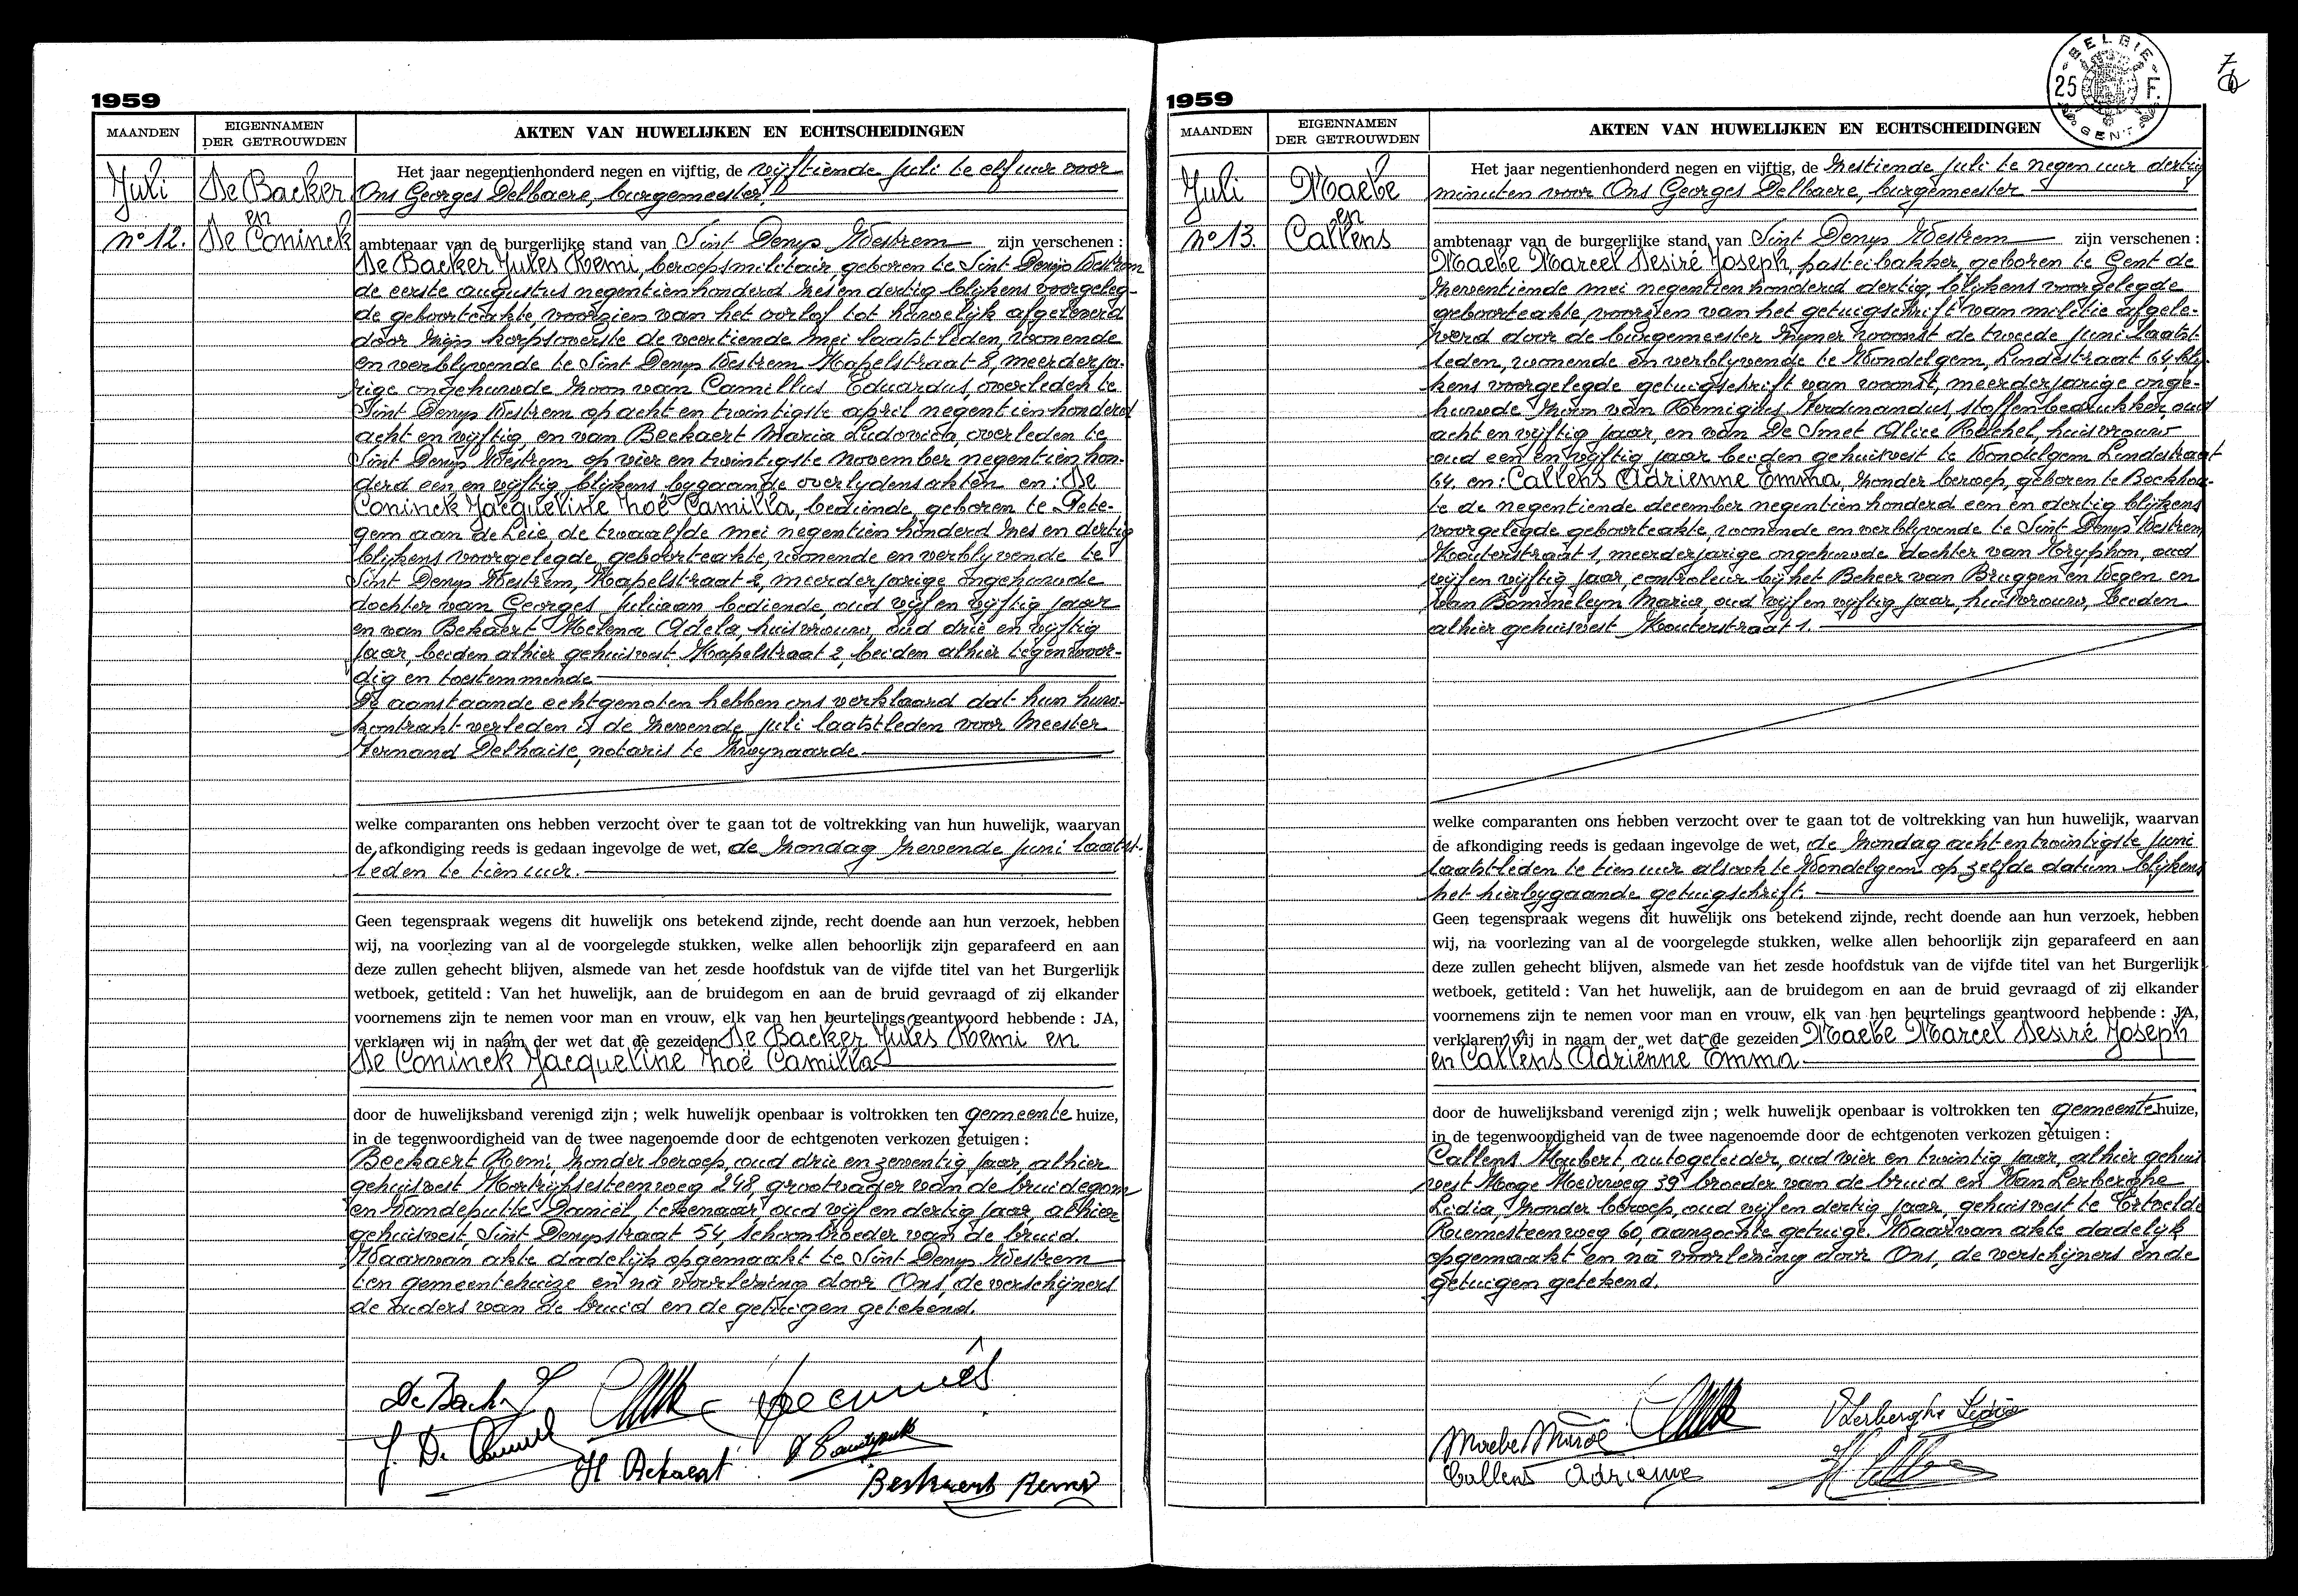 1959
MAANDEN
EIGENNAMEN
DER GETROUWDEN
AKTEN VAN HUWELIJKEN EN ECHTSCHEIDINGEN
Juli
De Backer
en
De Coninck
n° 12.
Het jaar negentienhonderd negen en vijftig, de vijftiende Juli te elf uur voor
Ons Georges Delbaere, burgemeester
ambtenaar van de burgerlijke stand van Sint Denys Westrem zijn verschenen :
De Backer Jules Remi, beroepsmilitair, geboren te Sint Denijs Westrem
de eerste augustus negentienhonderd zes en dertig blijkens voorgeleg-
de geboorteakte, voorzien van het oorlof tot huwelijk afgeleverd
door zijn korpsoverste de veertiende mei laatstleden, wonende
en verblyvende te Sint Denys Westrem Kapelstraat 8, meerderja-
rige ongehuwde zoon van Camillus Eduardus, overleden te
Sint Denys Westrem op acht en twintigste april negentienhonderd
acht en vijftig, en van Beekaert Maria Ludovica, overleden te
Sint Denys Westrem op vier en twintigste november negentien hon-
derd een en vijftig blijkens bygaande overlydensakten en : De
Coninck Jacqueline Zoë Camilla, bediende, geboren te Pete-
gem aan de Leie, de twaalfde mei negentien honderd zes en dertig
blijkens voorgelegde geboorteakte, wonende en verblyvende te
Sint Denys Westrem, Kapelstraat 2, meerderjarige ongehuwde
dochter van Georges Juliaan bediende, oud vijf en vijftig jaar
en van Bekaert Helena Adela, huisvrouw, oud drie en vijftig
jaar, beiden alhier gehuisvest Kapelstraat 2, beiden alhier tegenwoor-
dig en toestemmende
De aanstaande echtgenoten hebben ons verklaard dat hun huw.
kontrakt verleden is de zevende juli laatstleden voor Meester
Fernand Delhaise, notaris te Zwynaarde
welke comparanten ons hebben verzocht over te gaan tot de voltrekking van hun huwelijk, waarvan
de afkondiging reeds is gedaan ingevolge de wet, de zondag zevende juni laatst-
leden te tien uur.
Geen tegenspraak wegens dit huwelijk ons betekend zijnde, recht doende aan hun verzoek, hebben
wij, na voorlezing van al de voorgelegde stukken, welke allen behoorlijk zijn geparafeerd en aan
deze zullen gehecht blijven, alsmede van het zesde hoofdstuk van de vijfde titel van het Burgerlijk
wetboek, getiteld : Van het huwelijk, aan de bruidegom en aan de bruid gevraagd of zij elkander
voornemens zijn te nemen voor man en vrouw, elk van hen beurtelings geantwoord hebbende : JA,
verklaren wij in naam der wet dat de gezeiden De Backer Jules Remi en
De Coninck Jacqueline Zoë Camilla
door de huwelijksband verenigd zijn ; welk huwelijk openbaar is voltrokken ten gemeente huize,
in de tegenwoordigheid van de twee nagenoemde door de echtgenoten verkozen getuigen :
Beekaert Remi, zonder beroep, oud drie en zeventig jaar, alhier
gehuisvest Kortrijksesteenweg 248, grootvader van de bruidegom
en Vandeputte Daniël, tekenaar, oud vijf en dertig jaar, alhier
gehuisvest, Sint Denysstraat 54, schoonbroeder van de bruid.
Waarvan akte dadelijk opgemaakt te Sint Denys Westrem
ten gemeentehuize en nà voorlezing door Ons, de verschijners
de ouders van de bruid en de getuigen getekend.
J. De Coninck
H Bekaert
Beekaert Remi
1959
BELGIE
25 F.
GENT
7
MAANDEN
EIGENNAMEN
DER GETROUWDEN
AKTEN VAN HUWELIJKEN EN ECHTSCHEIDINGEN
Juli
Maebe
en
Callens
n° 13.
Het jaar negentienhonderd negen en vijftig, de zestiende Juli te negen uur dertig
minuten voor Ons Georges Delbaere, burgemeester
ambtenaar van de burgerlijke stand van Sint Denys Westrem zijn verschenen :
Maebe Marcel Desiré Joseph, pasteibakker, geboren te Gent de
zeventiende mei negentienhonderd dertig, blijkens voorgelegde
geboorteakte, voorzien van het getuigschrift van militie afgele-
verd door de burgemeester zijner woonst de tweede juni laatst
leden, wonende en verblyvende te Wondelgem, Lindestraat 64, bly-
kens voorgelegde getuigschrift van woonst, meerderjarige onge-
huwde zoon van Remigius Ferdinandus, stoffenbedrukker, oud
acht en vijftig jaar, en van De Smet Alice Rachel, huisvrouw
oud een en vijftig jaar beiden gehuisvest te Wondelgem Lindestraat
64. en : Callens Adrienne Emma, zonder beroep, geboren te Bockhou-
te de negentiende december negentienhonderd een en dertig blijkens
voorgelegde geboorteakte, wonende en verblyvende te Sint Denys Westrem
Kouterstraat 1, meerderjarige ongehuwde dochter van Tryphon, oud
vijf en vijftig jaar, controleur bij het Beheer van Bruggen en Wegen en
van Bommeleyn Maria, oud vijf en vijftig jaar, huisvrouw, beiden
alhier gehuisvest Kouterstraat 1.
welke comparanten ons hebben verzocht over te gaan tot de voltrekking van hun huwelijk, waarvan
de afkondiging reeds is gedaan ingevolge de wet, de zondag acht en twintigste juni
laatstleden te tien uur alsook te Wondelgem op zelfde datum blijkens
het hierbygaande getuigschrift.
Geen tegenspraak wegens dit huwelijk ons betekend zijnde, recht doende aan hun verzoek, hebben
wij, na voorlezing van al de voorgelegde stukken, welke allen behoorlijk zijn geparafeerd en aan
deze zullen gehecht blijven, alsmede van het zesde hoofdstuk van de vijfde titel van het Burgerlijk
wetboek, getiteld : Van het huwelijk, aan de bruidegom en aan de bruid gevraagd of zij elkander
voornemens zijn te nemen voor man en vrouw, elk van hen beurtelings geantwoord hebbende : JA,
verklaren wij in naam der wet dat de gezeiden Maebe Marcel Desiré Joseph
en Callens Adrienne Emma
door de huwelijksband verenigd zijn ; welk huwelijk openbaar is voltrokken ten gemeente huize,
in de tegenwoordigheid van de twee nagenoemde door de echtgenoten verkozen getuigen :
Callens Hubert, autogeleider, oud vier en twintig jaar, alhier gehuis
vest Hooge Heirweg 39 broeder van de bruid en Van Lerberghe
Lidia, zonder beroep, oud vijf en dertig jaar, gehuisvest te Ertvelde
Riemesteenweg 60, aanzochte getuige. Waarvan akte dadelijk
opgemaakt en nà voorlezing door Ons, de verschijners en de
getuigen getekend.
Maebe Marcel
VLerberghe Lidia
Callens Adrienne